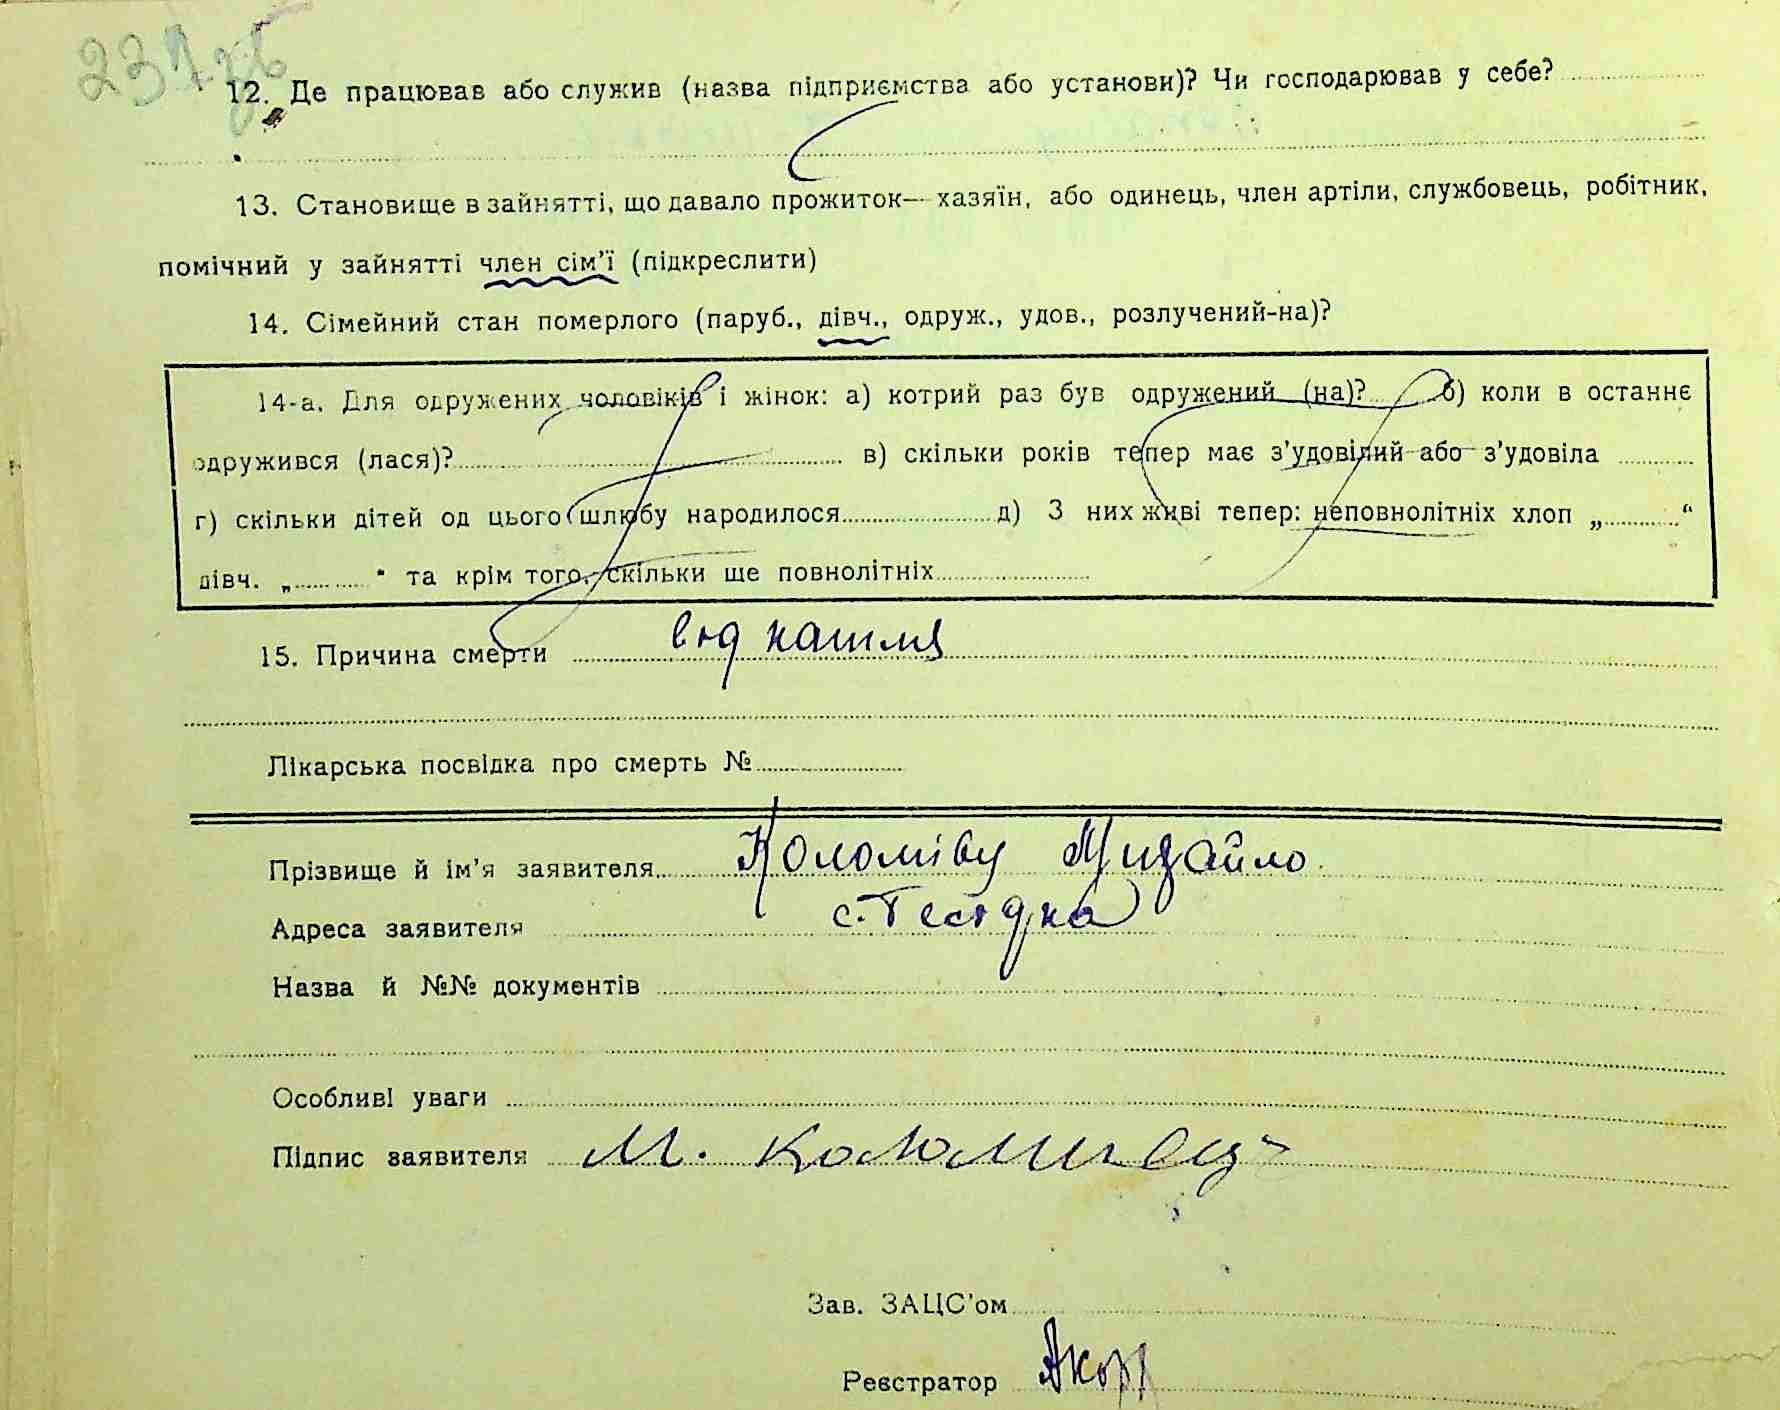 231 зб
12. Де працював або служив (назва підприємства або установи)? Чи господарював у себе?
13. Становище в зайнятті, що давало прожиток— хазяїн, або одинець, член артіли, службовець, робітник,
помічний у зайнятті член сім'ї (підкреслити)
14. Сімейний стан померлого (паруб., дівч., одруж., удов., розлучений-на)?
14-а. Для одружених чоловіків і жінок: а) котрий раз був одружений (на)? б) коли в останнє
одружився (лася)? в) скільки років тепер має з'удовілий або з'удовіла
г) скільки дітей од цього шлюбу народилося д) З них живі тепер: неповнолітніх хлоп „ “
дівч. „ “ та крім того, скільки ще повнолітніх
15. Причина смерти від кашля
Лікарська посвідка про смерть №
Прізвище й ім'я заявителя Коломієць Михайло
Адреса заявителя с.
Назва й №№ документів
Особливі уваги
Підпис заявителя М. Коломиец
Зав. ЗАЦС'ом
Реєстратор